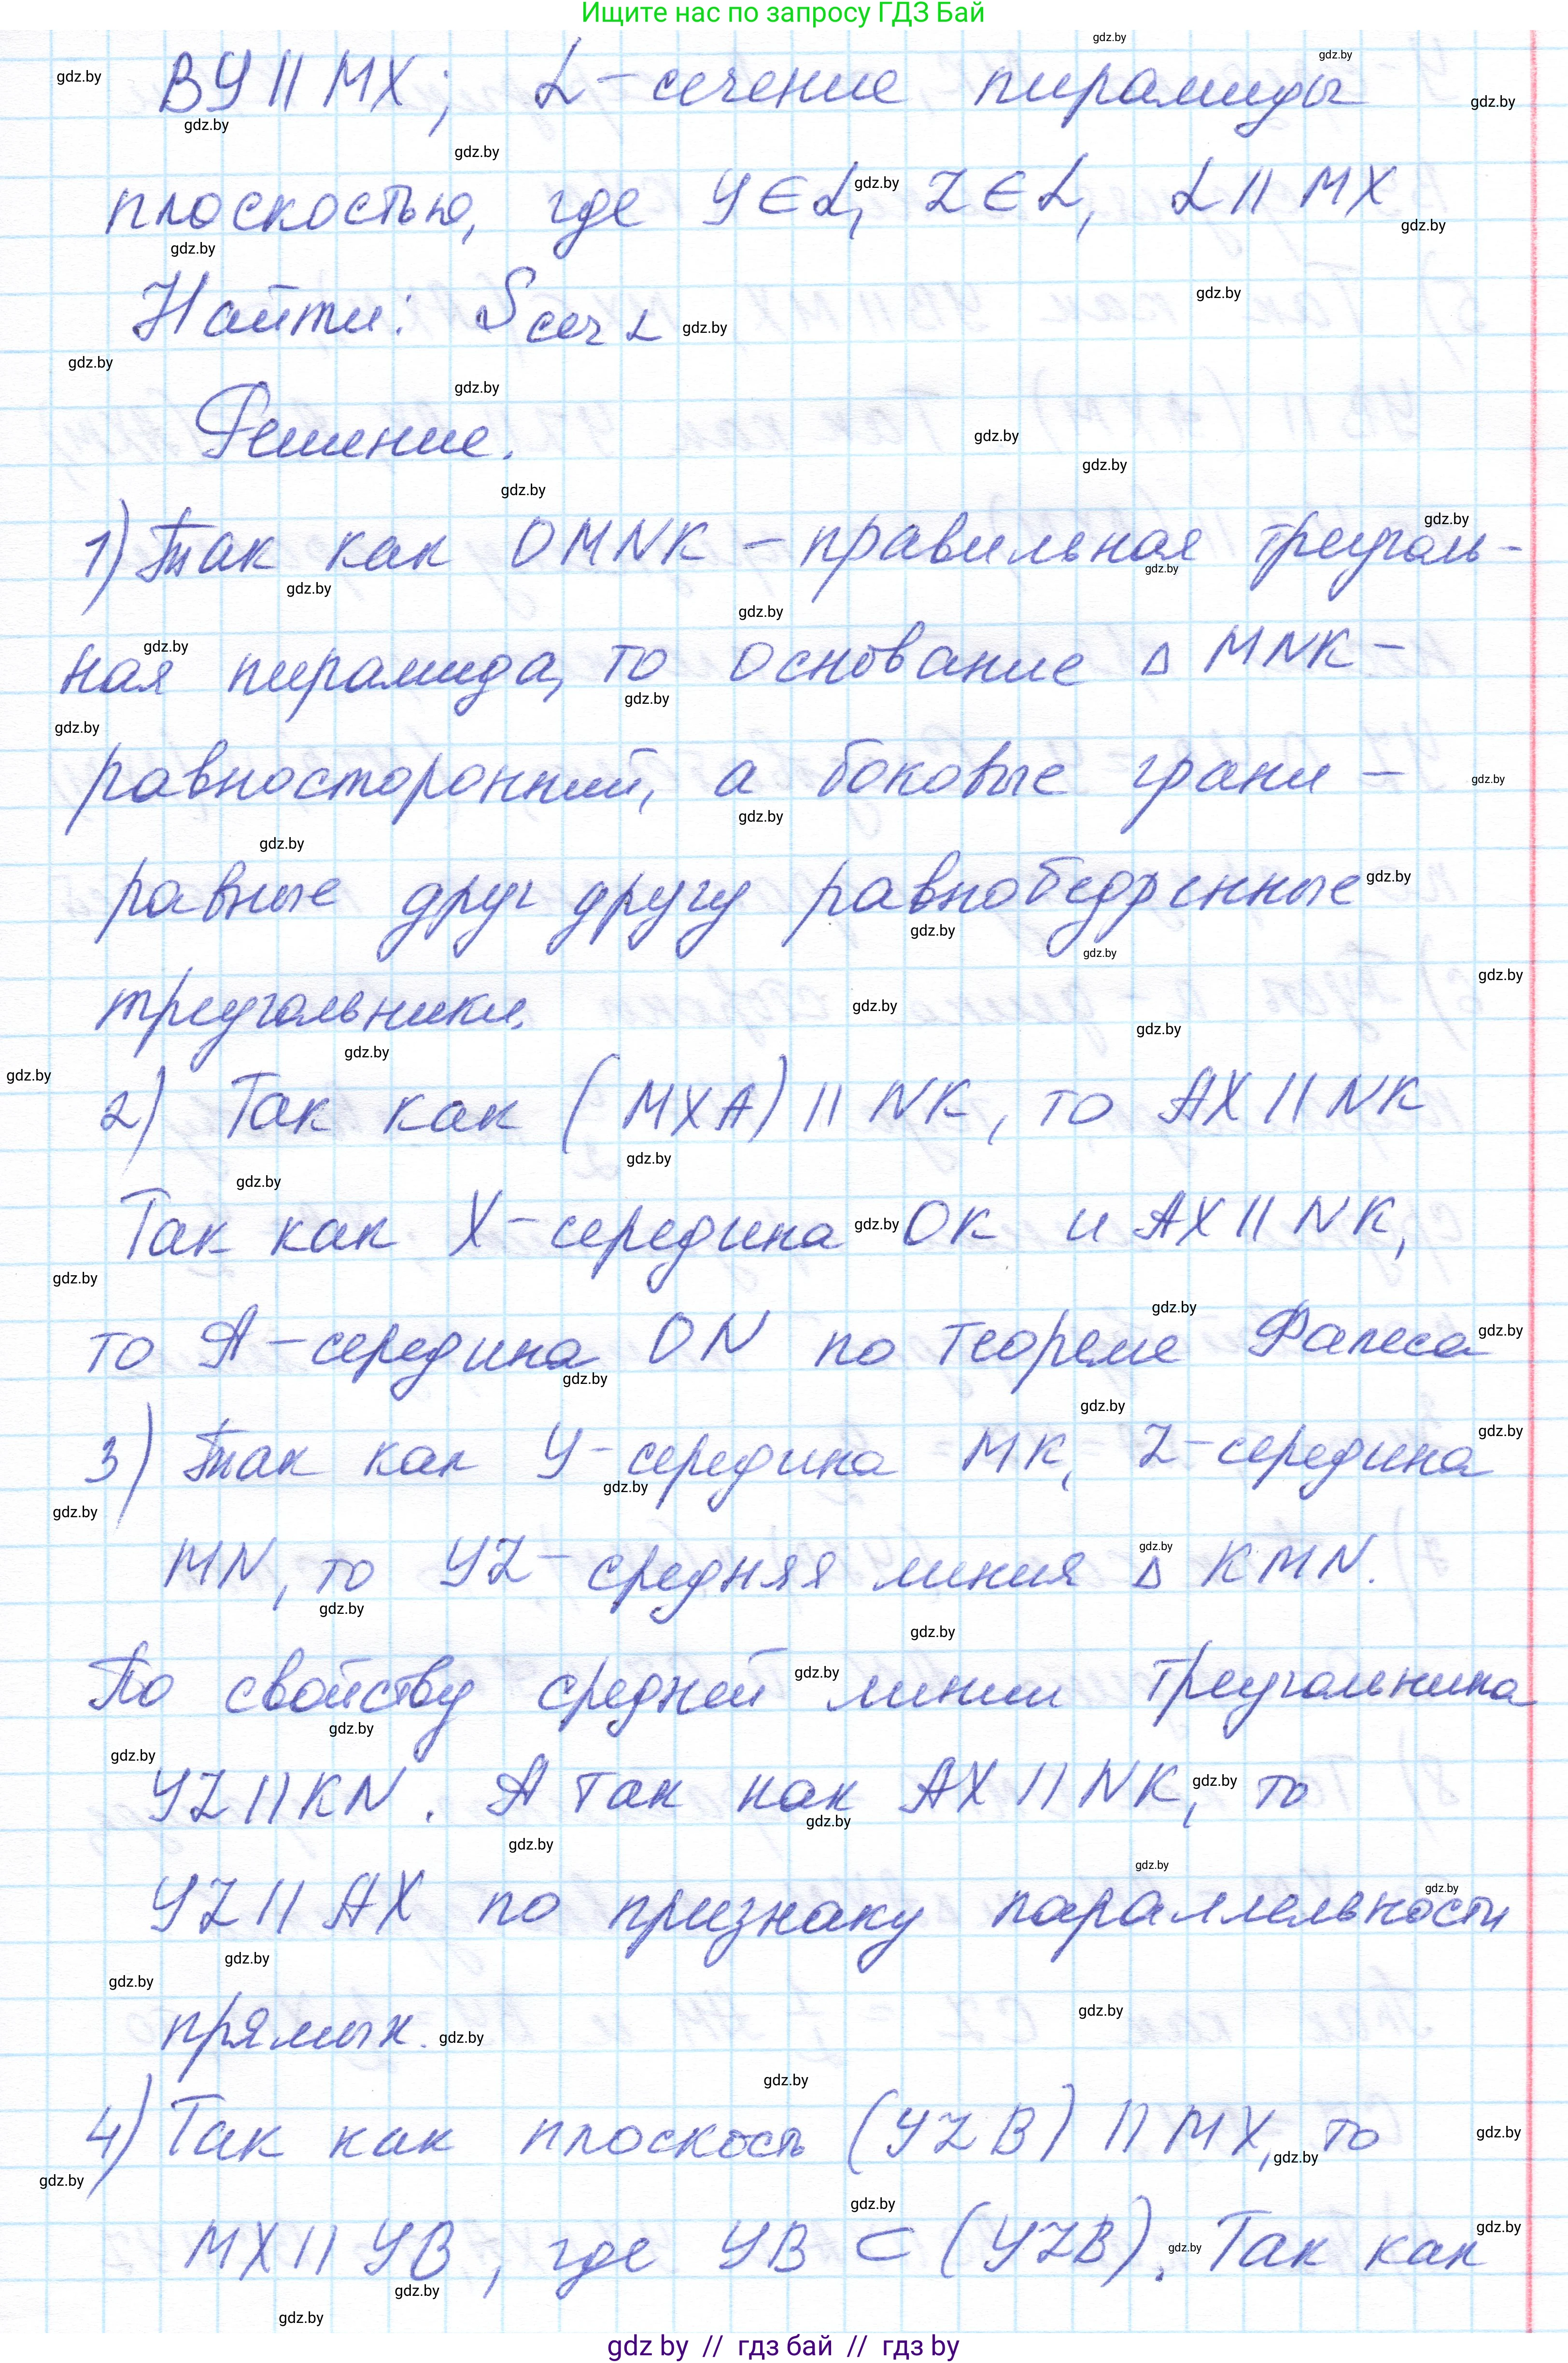 Ищите нас по запросу ГДЗ Бай
BY || MX; α – сечение пирамиды
плоскостью, где Y ∈ α, Z ∈ α, α || MX
Найти: Sсеч α
Решение.
1) Так как OMNK – правильная треуголь-
ная пирамида, то основание Δ MNK –
равносторонний, а боковые грани –
равные друг другу равнобедренные
треугольники.
2) Так как (MXA) || NK, то AX || NK
Так как X – середина OK и AX || NK,
то A – середина ON по теореме Фалеса
3) Так как Y – середина MK, Z – середина
MN, то YZ – средняя линия Δ KMN.
По свойству средней линии треугольника
YZ || KN. А так как AX || NK, то
YZ || AX по признаку параллельности
прямых.
4) Так как плоскость (YZB) || MX, то
MX || YB, где YB ⊂ (YZB). Так как
gdz by // гдз бай // гдз by